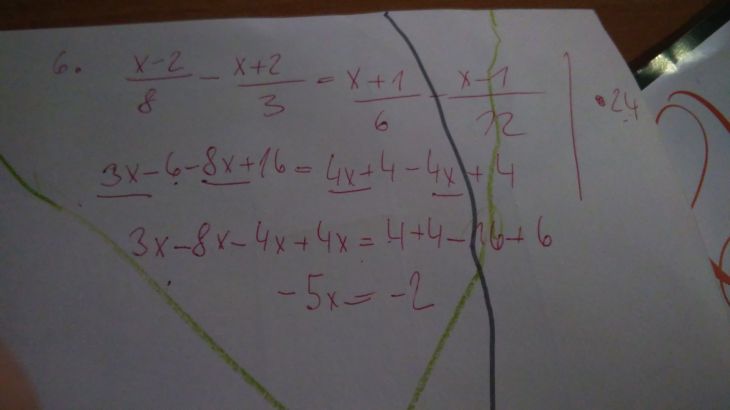 6. (x-2)/8 - (x+2)/3 = (x+1)/6 - (x-1)/12 | •24
3x-6-8x+16=4x+4-4x+4
3x-8x-4x+4x=4+4-16+6
-5x=-2